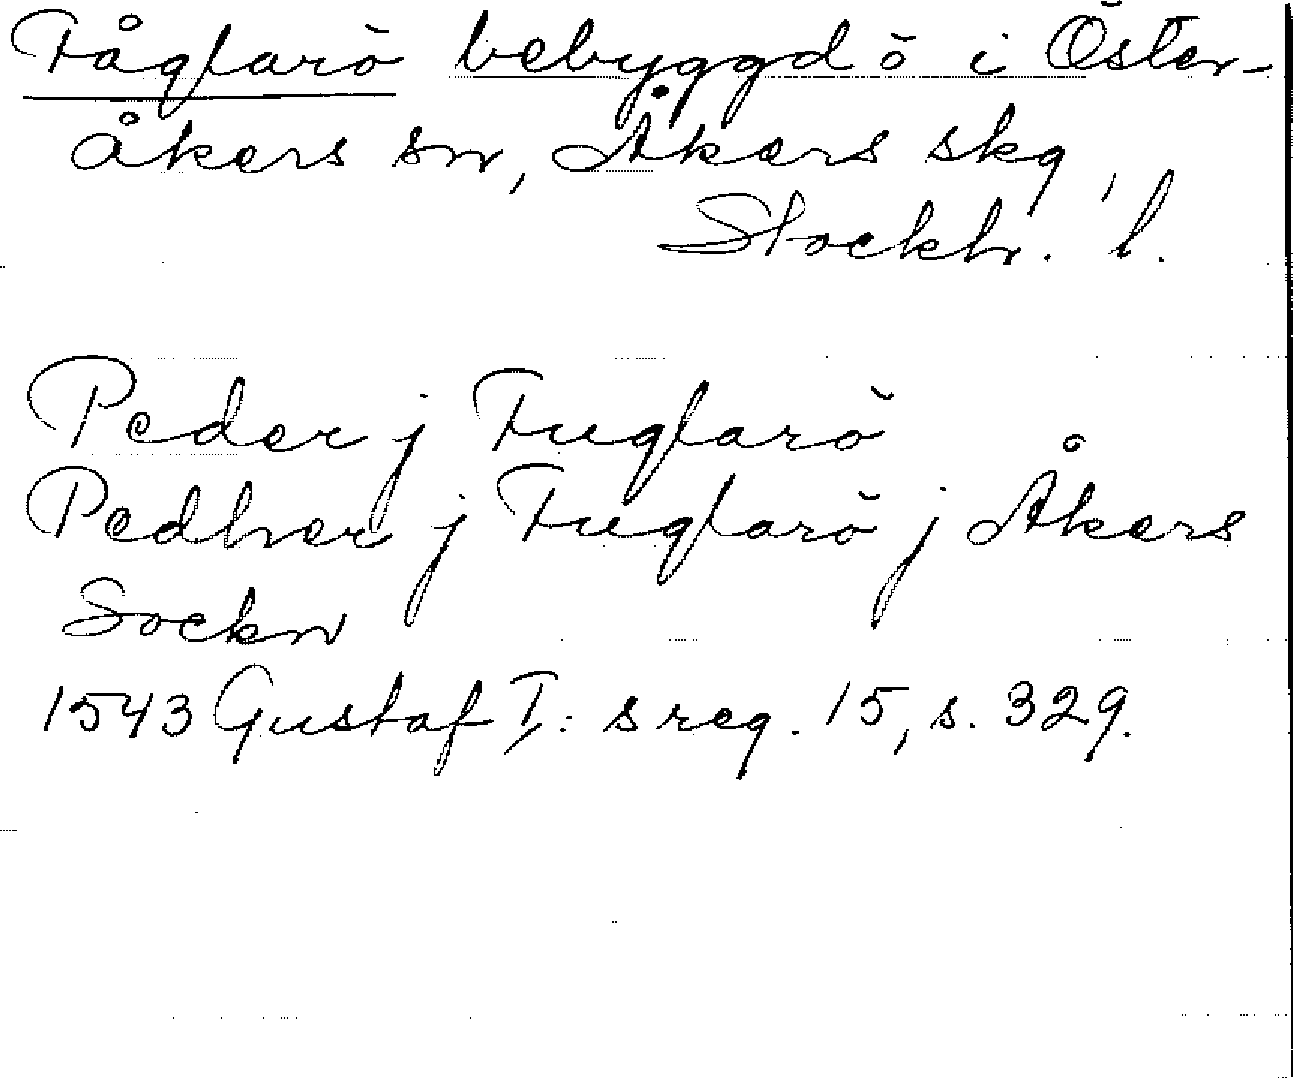 Fågларö bebyggd ö i Öster-
åkers sn, Åkers skg,
Stockh. l.
Peder j Fuglarö
Pedher j Fuglarö j Åkers
Sockn
1543 Gustaf I:s reg. 15, s. 329.